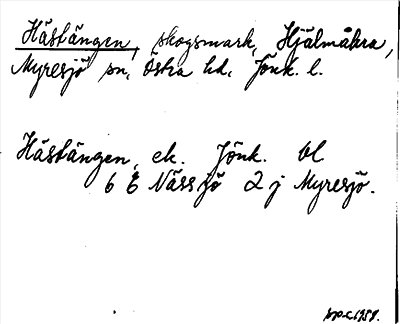 Hästängen, skogsmark, Hjälmåkra,
Myresjö sn, Östra hd, Jönk. l.
Hästängen, ek. Jönk. bl
6 E Nässjö 2 j Myresjö.